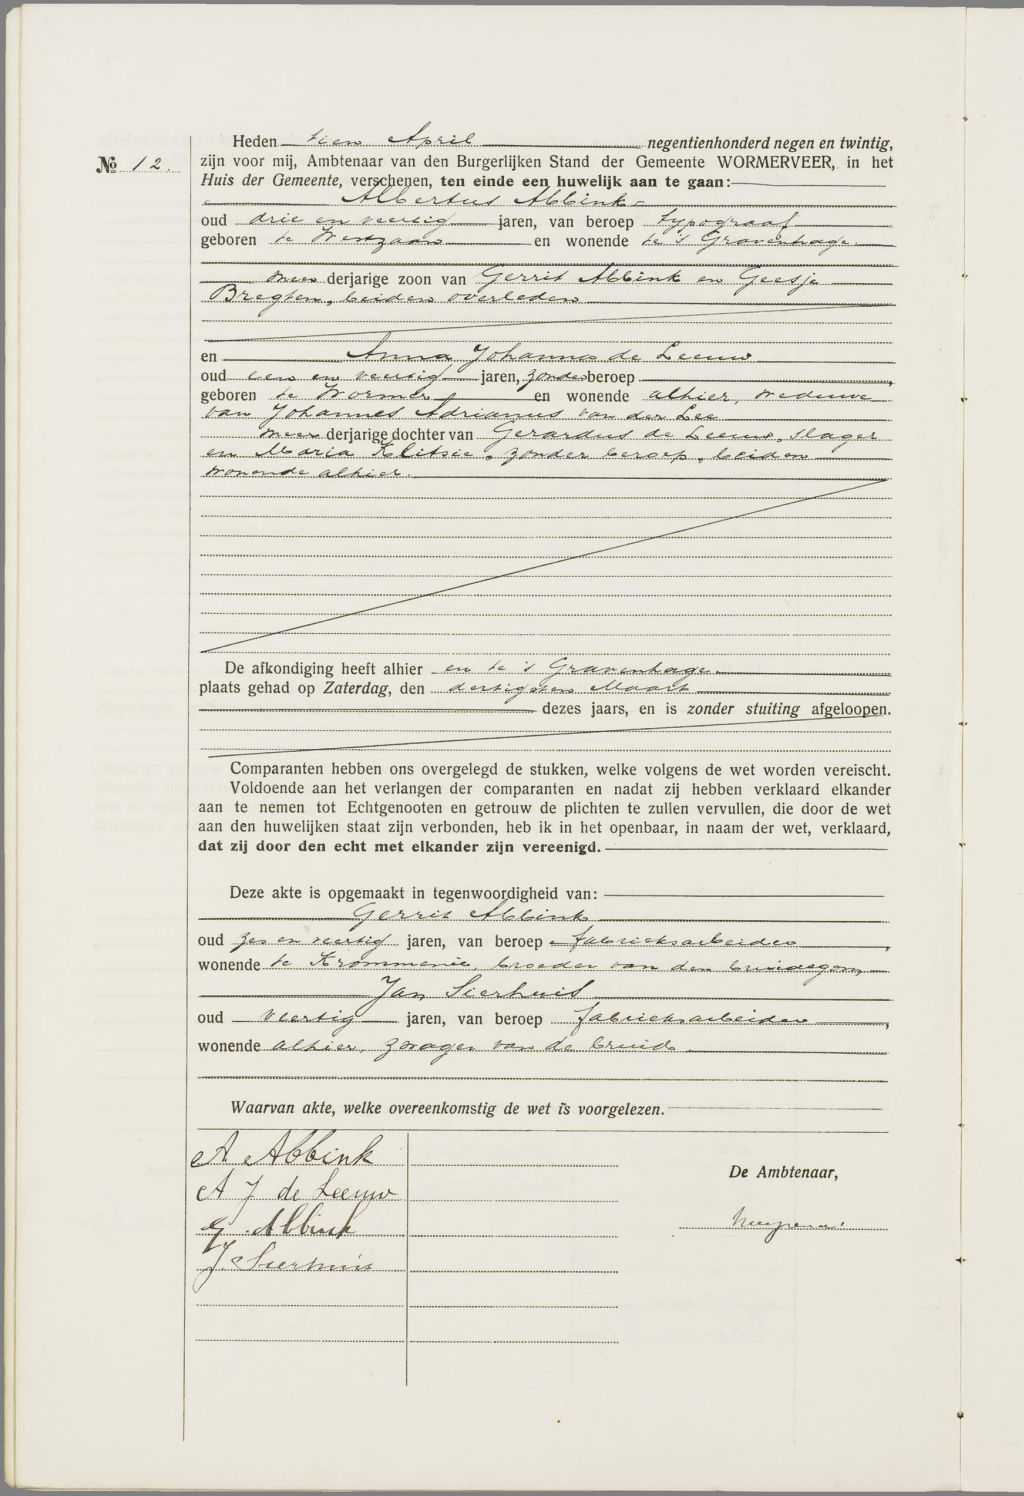 Heden tien April negentienhonderd negen en twintig,
№ 12. zijn voor mij, Ambtenaar van den Burgerlijken Stand der Gemeente WORMERVEER, in het
Huis der Gemeente, verschenen, ten einde een huwelijk aan te gaan:
Albertus Abbink
oud drie en veertig jaren, van beroep typograaf
geboren te Westzaan en wonende te 's Gravenhage
meerderjarige zoon van Gerrit Abbink en Geesje
Bregten, beiden overleden
en Anna Johanna de Leeuw
oud een en veertig jaren, zonder beroep,
geboren te Wormer en wonende alhier, weduwe
van Johannes Adrianus van der Lee
meerderjarige dochter van Gerardus de Leeuw, slager
en Maria Klitsie, zonder beroep, beiden
wonende alhier.
De afkondiging heeft alhier en te 's Gravenhage
plaats gehad op Zaterdag, den dertigsten Maart
dezes jaars, en is zonder stuiting afgeloopen.
Comparanten hebben ons overgelegd de stukken, welke volgens de wet worden vereischt.
Voldoende aan het verlangen der comparanten en nadat zij hebben verklaard elkander
aan te nemen tot Echtgenooten en getrouw de plichten te zullen vervullen, die door de wet
aan den huwelijken staat zijn verbonden, heb ik in het openbaar, in naam der wet, verklaard,
dat zij door den echt met elkander zijn vereenigd.
Deze akte is opgemaakt in tegenwoordigheid van:
Gerrit Abbink
oud zes en veertig jaren, van beroep fabrieksarbeider,
wonende te Krommenie, broeder van den bruidegom,
Jan Sierhuis
oud veertig jaren, van beroep fabrieksarbeider,
wonende alhier, zwager van de bruid
Waarvan akte, welke overeenkomstig de wet is voorgelezen.
A. Abbink
A J de Leeuw
G. Abbink
J. Sierhuis
De Ambtenaar,